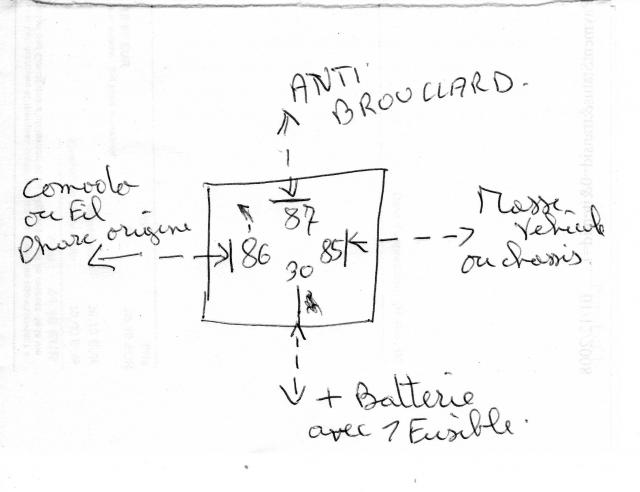 ANTI
BROUILLARD.
Comodo
ou Fil
Phare origine
87
86
85
30
Masse
Vehicule
ou chassis.
+ Batterie
avec 1 Fusible.